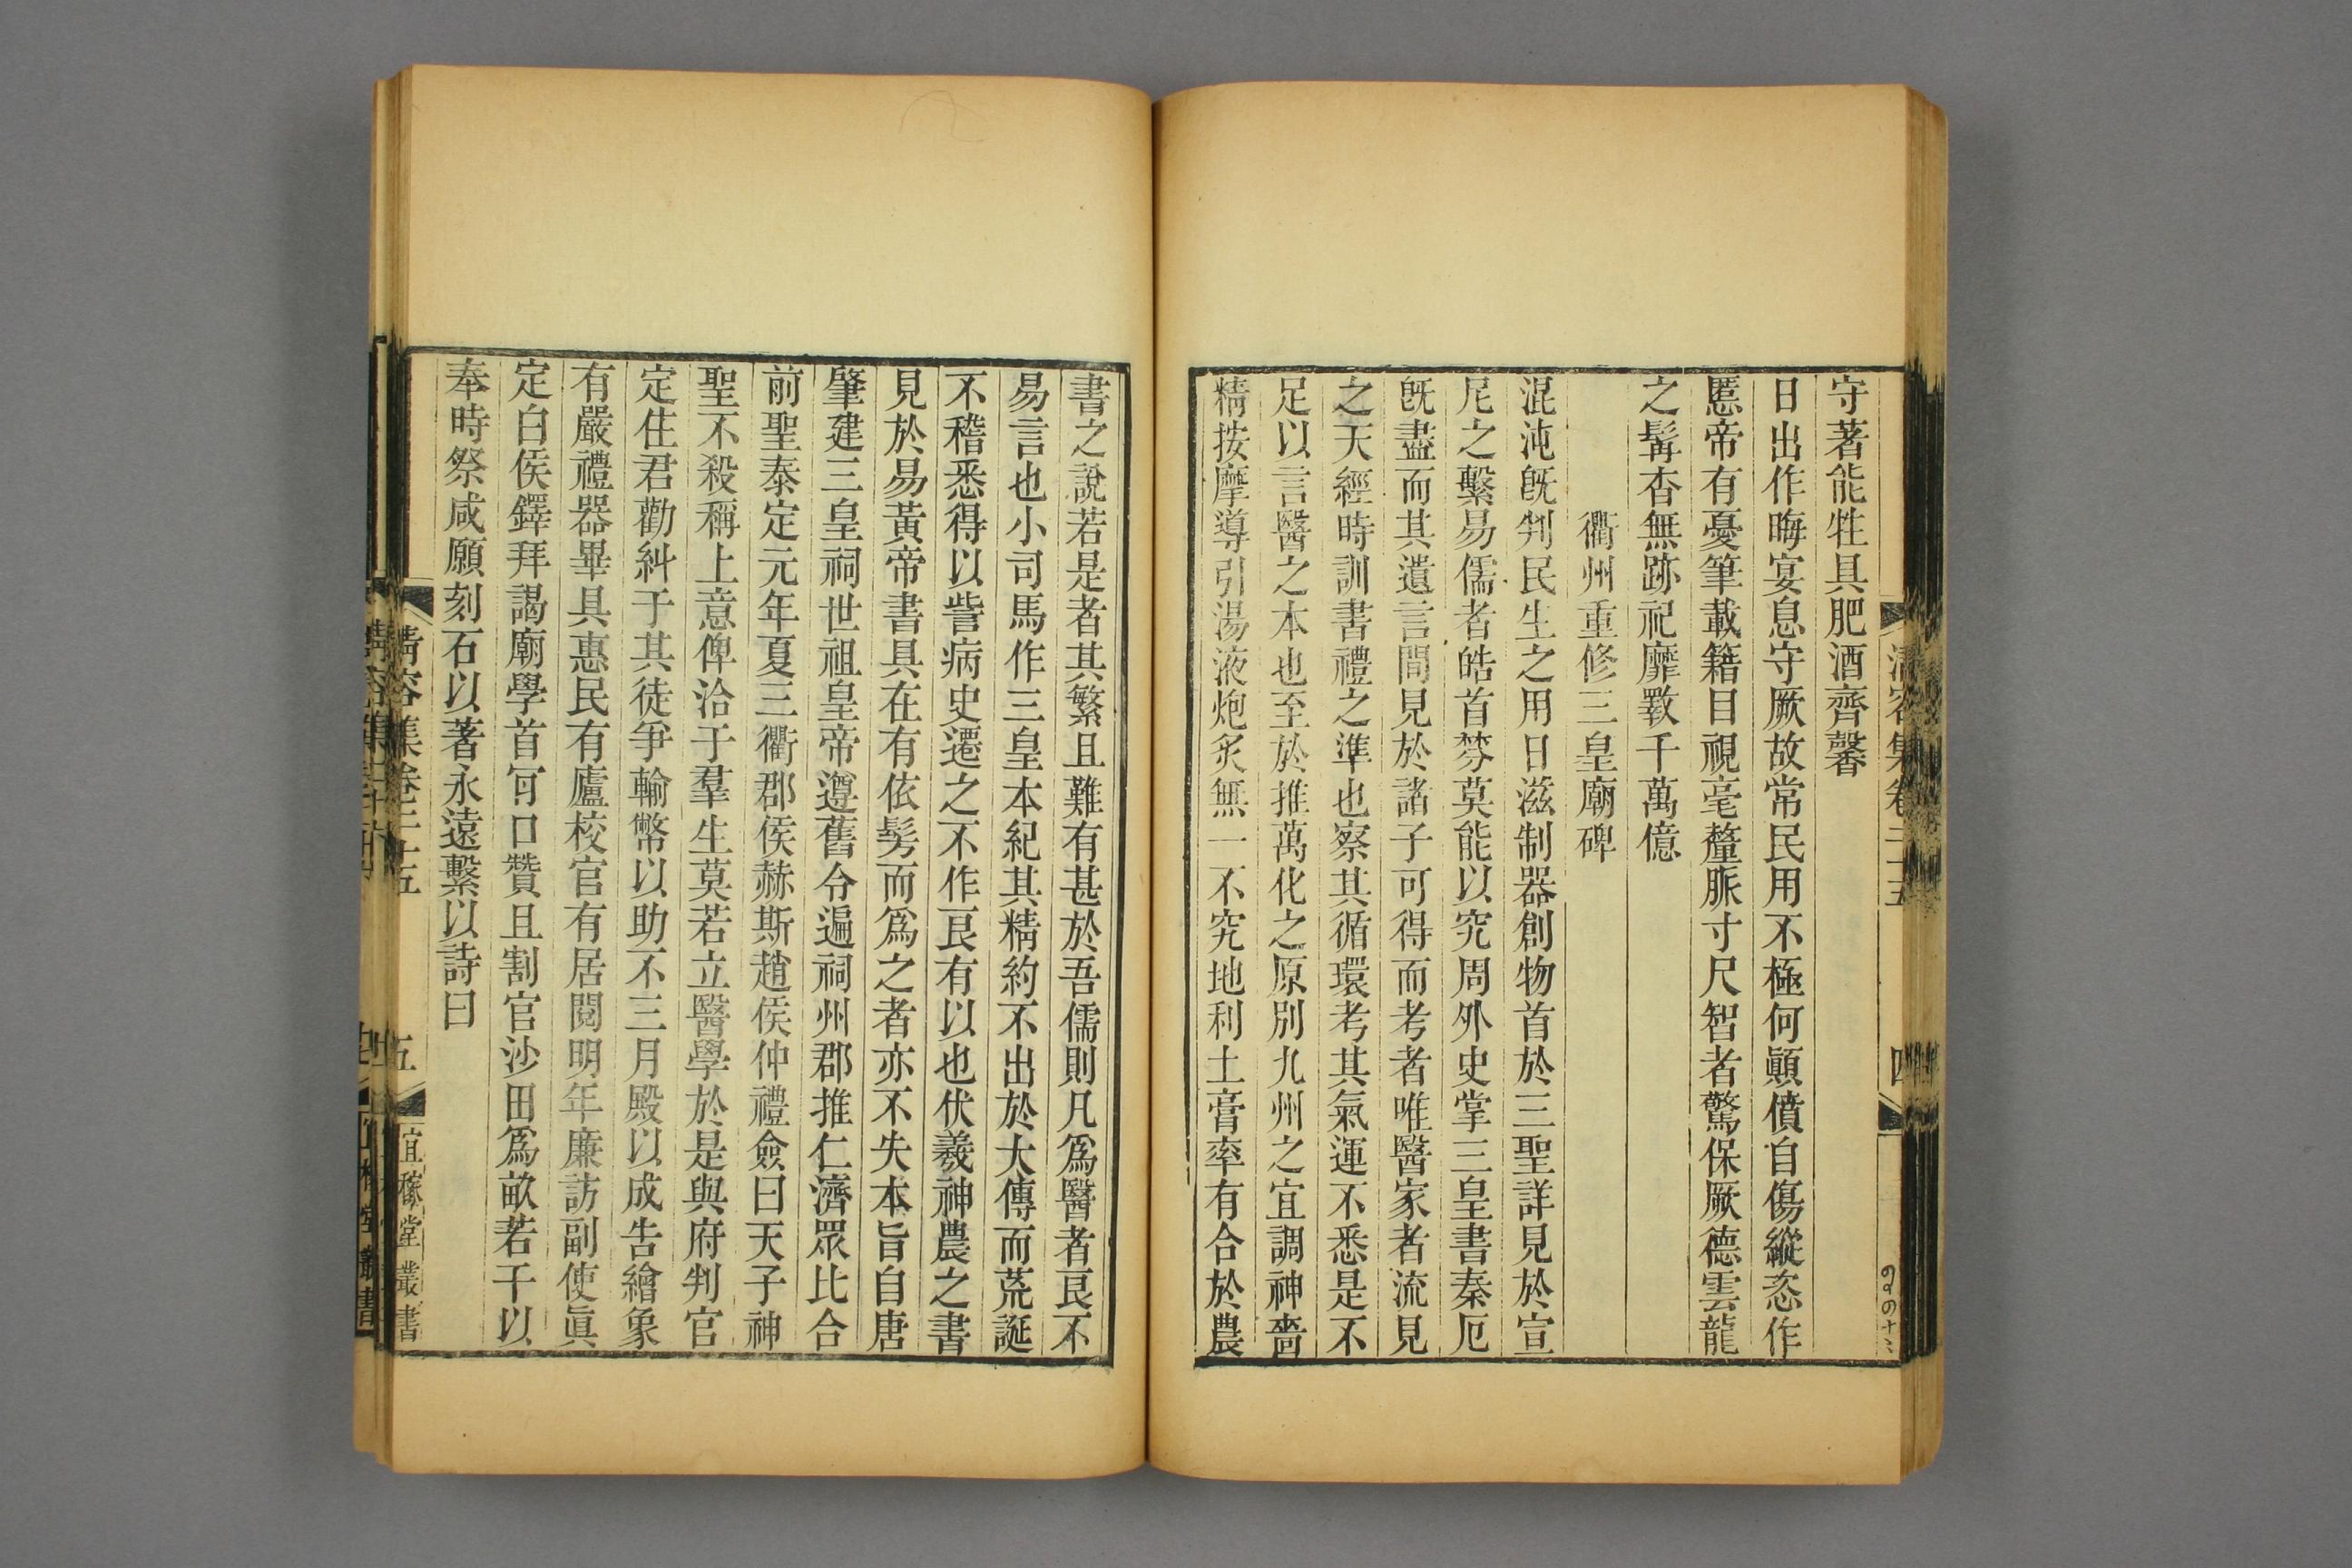 守著能牲具肥酒齊馨
日出作晦宴息守厥故常民用不極何顚僨自傷縱恣作
慝帝有憂筆載籍目視毫釐脈寸尺智者驚保厥德雲龍
之髯杳無跡祀靡斁千萬億
衢州重修三皇廟碑
混沌旣判民生之用日滋制器創物首於三聖詳見於宣
尼之繫易儒者皓首棼莫能以究周外史掌三皇書秦厄
旣盡而其遺言間見於諸子可得而考者唯醫家者流見
之天經時訓書禮之準也察其循環考其氣運不悉是不
足以言醫之本也至於推萬化之原別九州之宜調神嗇
精按摩導引湯液炮炙無一不究地利土膏率有合於農
書之說若是者其繁且難有甚於吾儒則凡爲醫者艮不
易言也小司馬作三皇本紀其精約不出於大傳而荒誕
不稽悉得以訾病史遷之不作艮有以也伏羲神農之書
見於易黃帝書具在有依髣而爲之者亦不失本旨自唐
肇建三皇祠世祖皇帝遵舊令遍祠州郡推仁濟眾比合
前聖泰定元年夏三衢郡侯赫斯趙侯仲禮僉曰天子神
聖不殺稱上意俾洽于羣生莫若立醫學於是與府判官
定住君勸糾于其徒爭輸幣以助不三月殿以成告繪象
有嚴禮器畢具惠民有廬校官有居閱明年廉訪副使眞
定白侯鐸拜謁廟學首肎口贊且割官沙田爲畝若干以
奉時祭咸願刻石以著永遠繫以詩曰
清容集卷二十五
四
清容集卷二十五
五
宜稼堂叢書